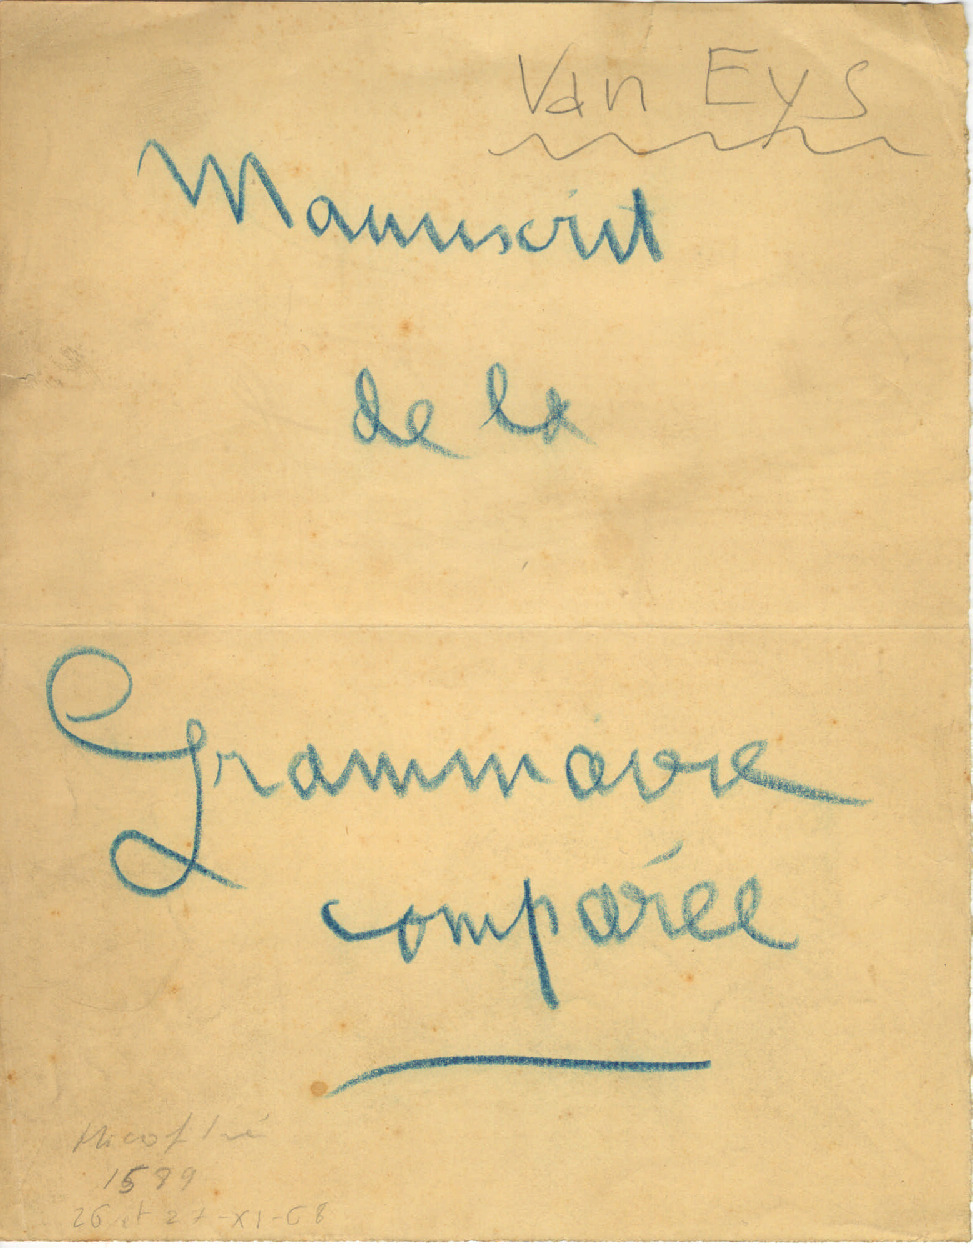 Van Eys
Manuscrit
de la
Grammaire
comparée
1589
26 et 27-XI-68